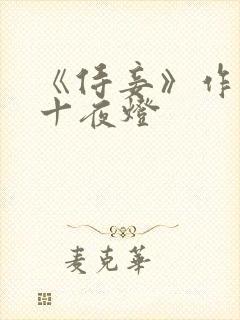 《侍妾》作
十夜燈
麦克華